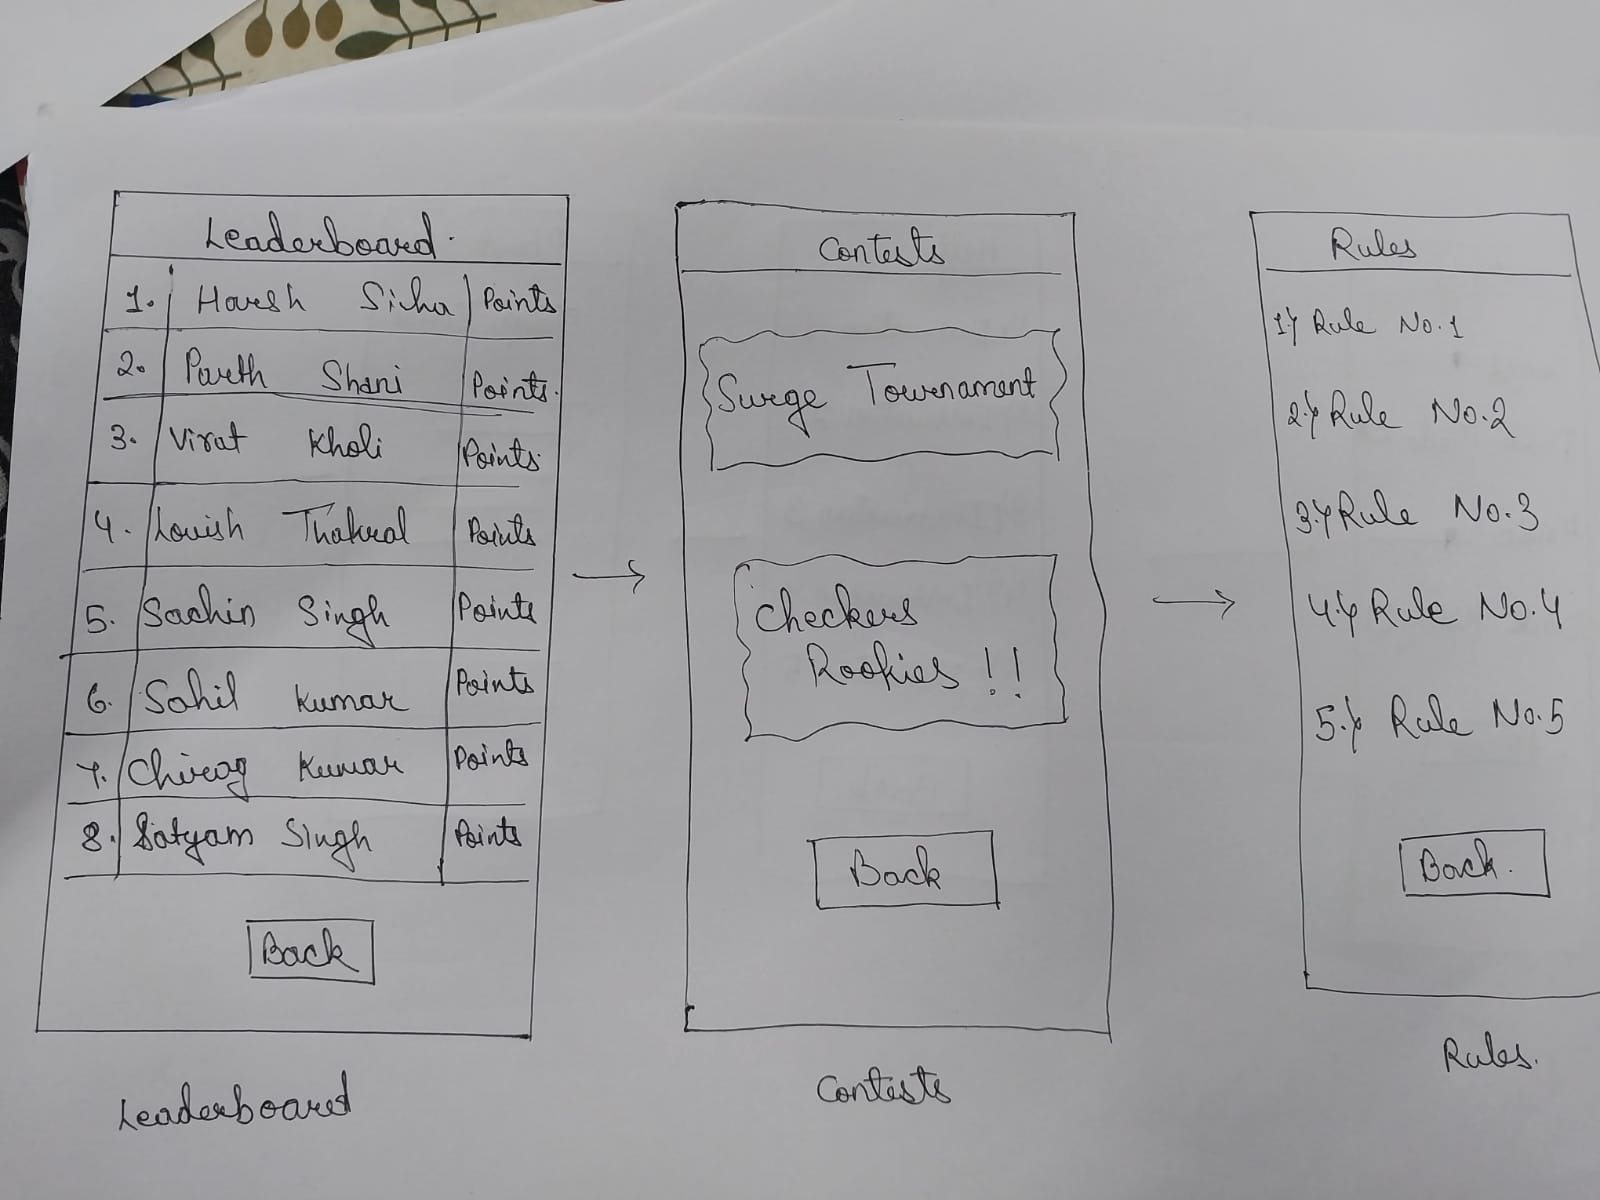 Leaderboard.
1. Harsh Sicha Points
2. Parth Shani Points.
3. Virat Kholi Points.
4. Lovish Thakral Points
5. Sachin Singh Points
6. Sahil Kumar Points
7. Chirag Kumar Points
8. Satyam Singh Points
Back
Leaderboard
Contests
Surge Tournament
Checkers
Rookies !!
Back
Contests
Rules
1) Rule No.1
2.) Rule No.2
3.) Rule No.3
4.) Rule No.4
5.) Rule No.5
Back.
Rules.